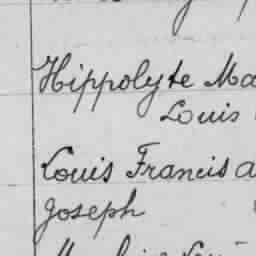 Hippolyte Ma
Louis
Louis Francis a
Joseph